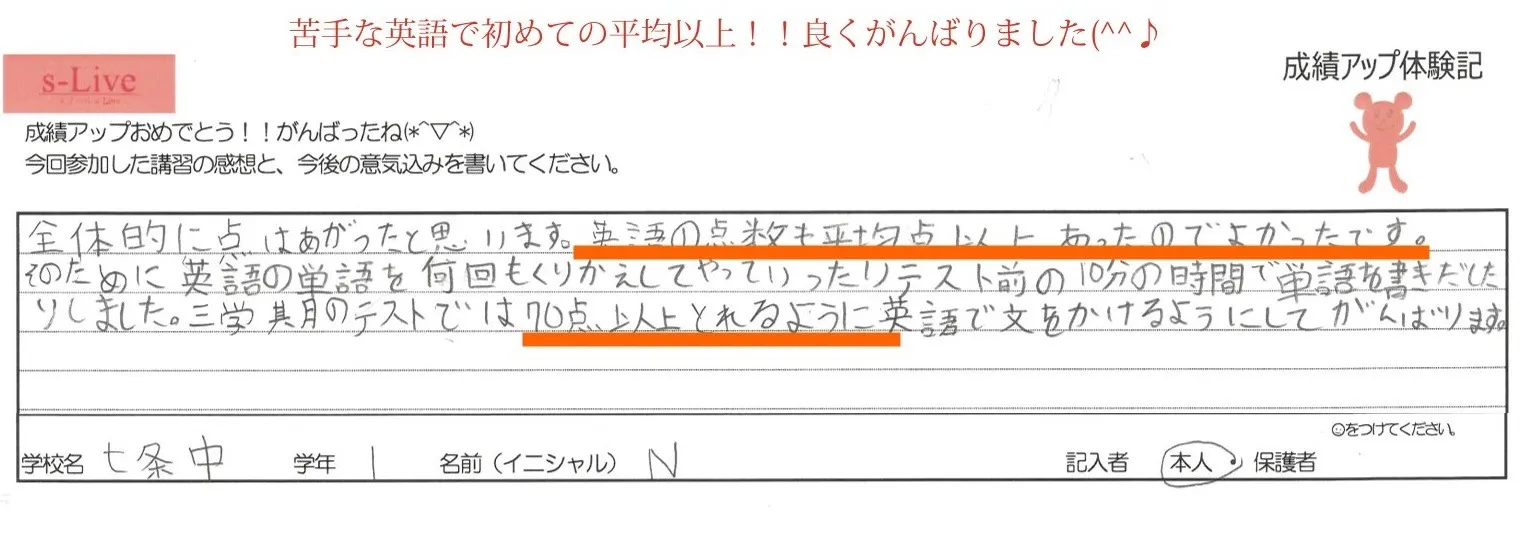 苦手な英語で初めての平均以上！！良くがんばりました(^^♪
s-Live
成績アップ体験記
成績アップおめでとう！！がんばったね(*^▽^*)
今回参加した講習の感想と、今後の意気込みを書いてください。
全体的に点はあがったと思います。英語の点数も平均点以上あったのでよかったです。
そのために英語の単語を何回もくりかえしてやっていったりテスト前の10分の時間で単語を書きだした
りしました。三学期のテストでは70点以上とれるように英語で文をかけるようにしてがんばります。
☺をつけてください。
学校名 七条中 学年 1 名前（イニシャル） N 記入者 本人・保護者